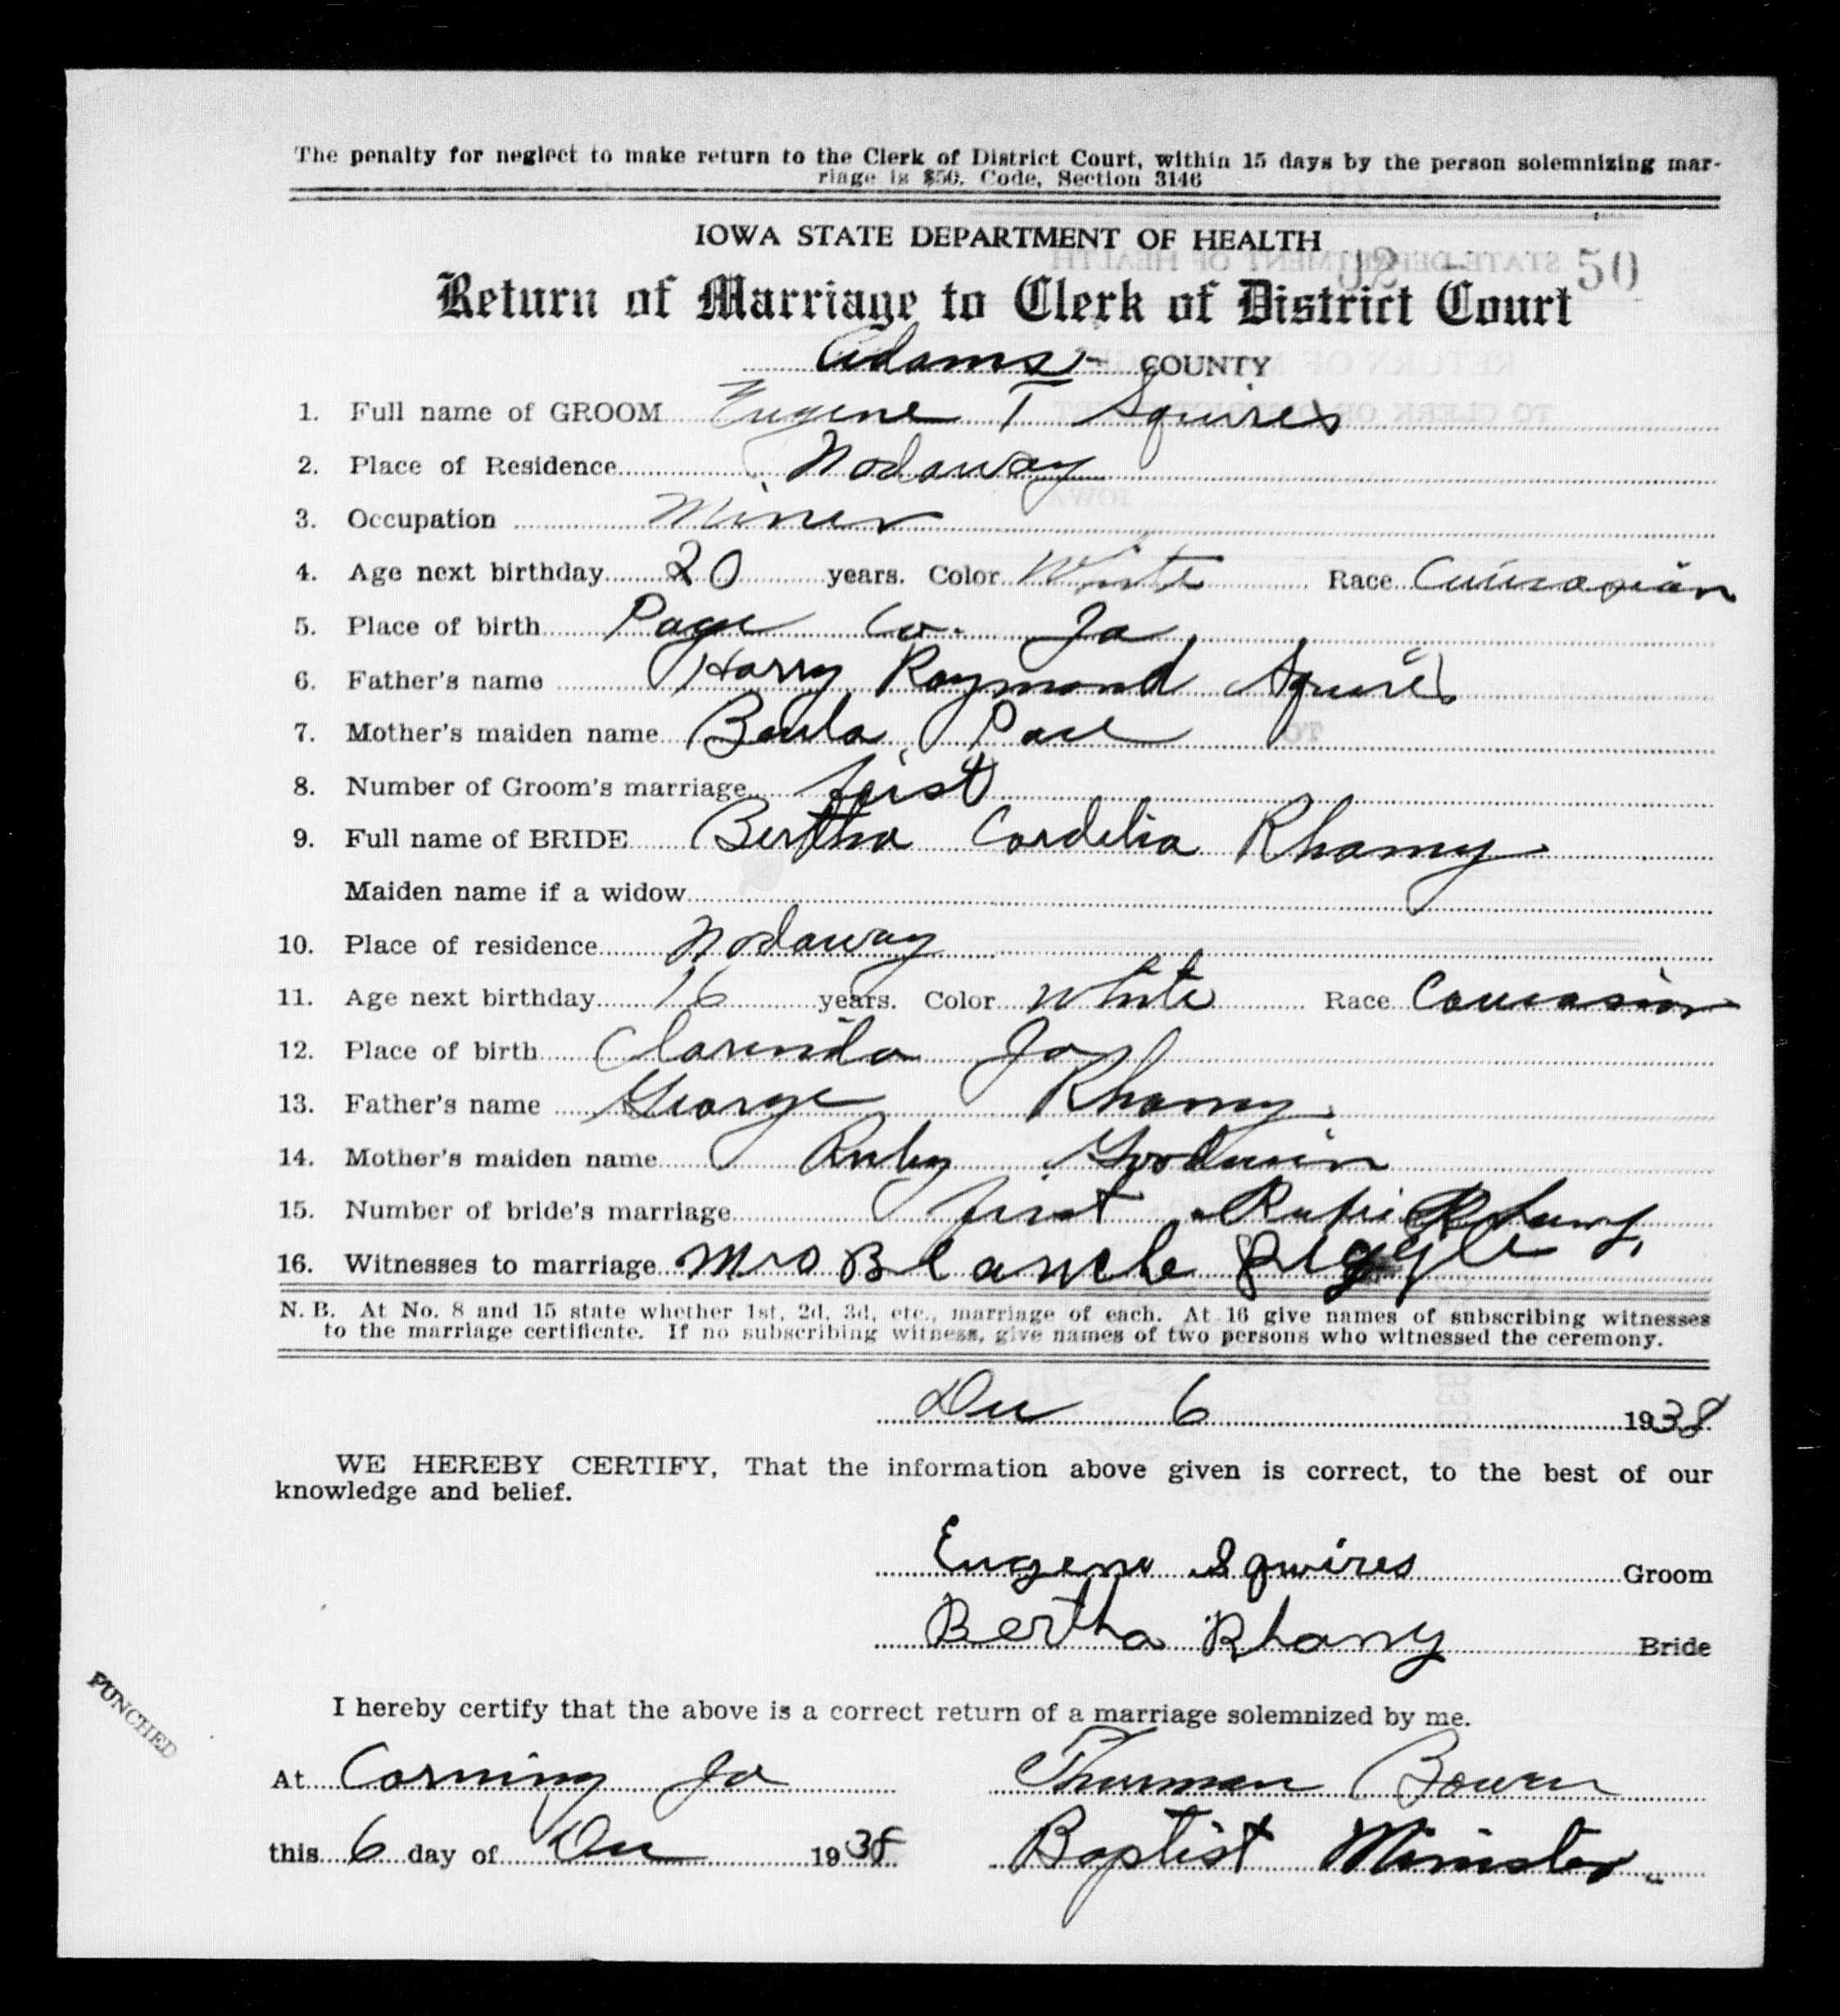 The penalty for neglect to make return to the Clerk of District Court, within 15 days by the person solemnizing mar-
riage is $50. Code, Section 3146
IOWA STATE DEPARTMENT OF HEALTH
50
Return of Marriage to Clerk of District Court
Adams COUNTY
1. Full name of GROOM Eugene T Squires
2. Place of Residence Nodaway
3. Occupation Miner
4. Age next birthday 20 years. Color White Race
5. Place of birth Page Co. Ia
6. Father's name Harry Raymond Squires
7. Mother's maiden name Beula
8. Number of Groom's marriage first
9. Full name of BRIDE Bertha Cordelia Rhamy
Maiden name if a widow
10. Place of residence Nodaway
11. Age next birthday 16 years. Color White Race
12. Place of birth Clarinda Ia
13. Father's name George Rhamy
14. Mother's maiden name Ruby Goodwin
15. Number of bride's marriage first
16. Witnesses to marriage Mrs Blanche
N. B. At No. 8 and 15 state whether 1st, 2d, 3d, etc., marriage of each. At 16 give names of subscribing witnesses
to the marriage certificate. If no subscribing witness, give names of two persons who witnessed the ceremony.
Dec 6 1938
WE HEREBY CERTIFY, That the information above given is correct, to the best of our
knowledge and belief.
Eugene Squires Groom
Bertha Rhamy Bride
PUNCHED
I hereby certify that the above is a correct return of a marriage solemnized by me.
At Corning Ia Thurman Bowen
this 6 day of Dec 1938 Baptist Minister